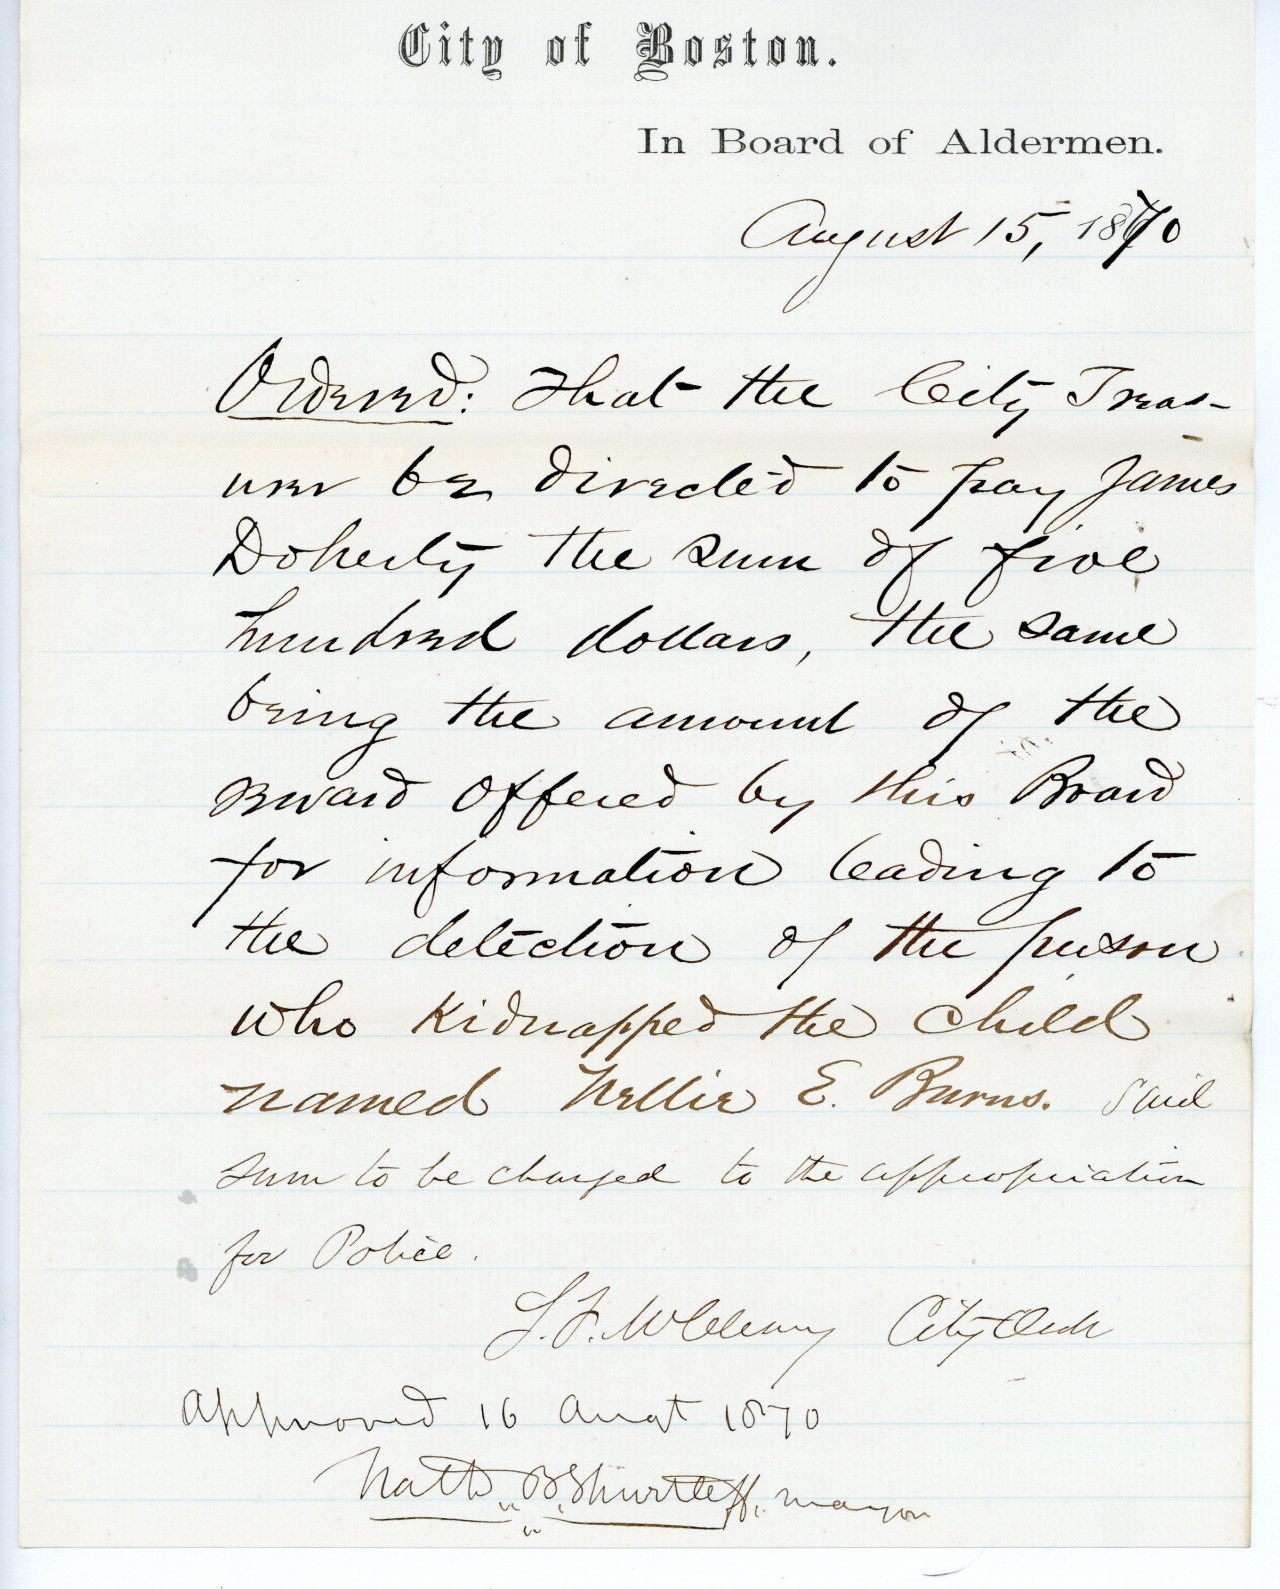 City of Boston.
In Board of Aldermen.
August 15, 1870
Ordered: That the City Treas-
urer be directed to pay James
Doherty the sum of five
hundred dollars, the same
being the amount of the
reward offered by this Board
for information leading to
the detection of the person
who kidnapped the child
named Nellie E. Burns. Said
sum to be charged to the appropriation
for Police.
S. F. McCleary City Clerk
Approved 16 August 1870
Nath. B. Shurtleff. mayor